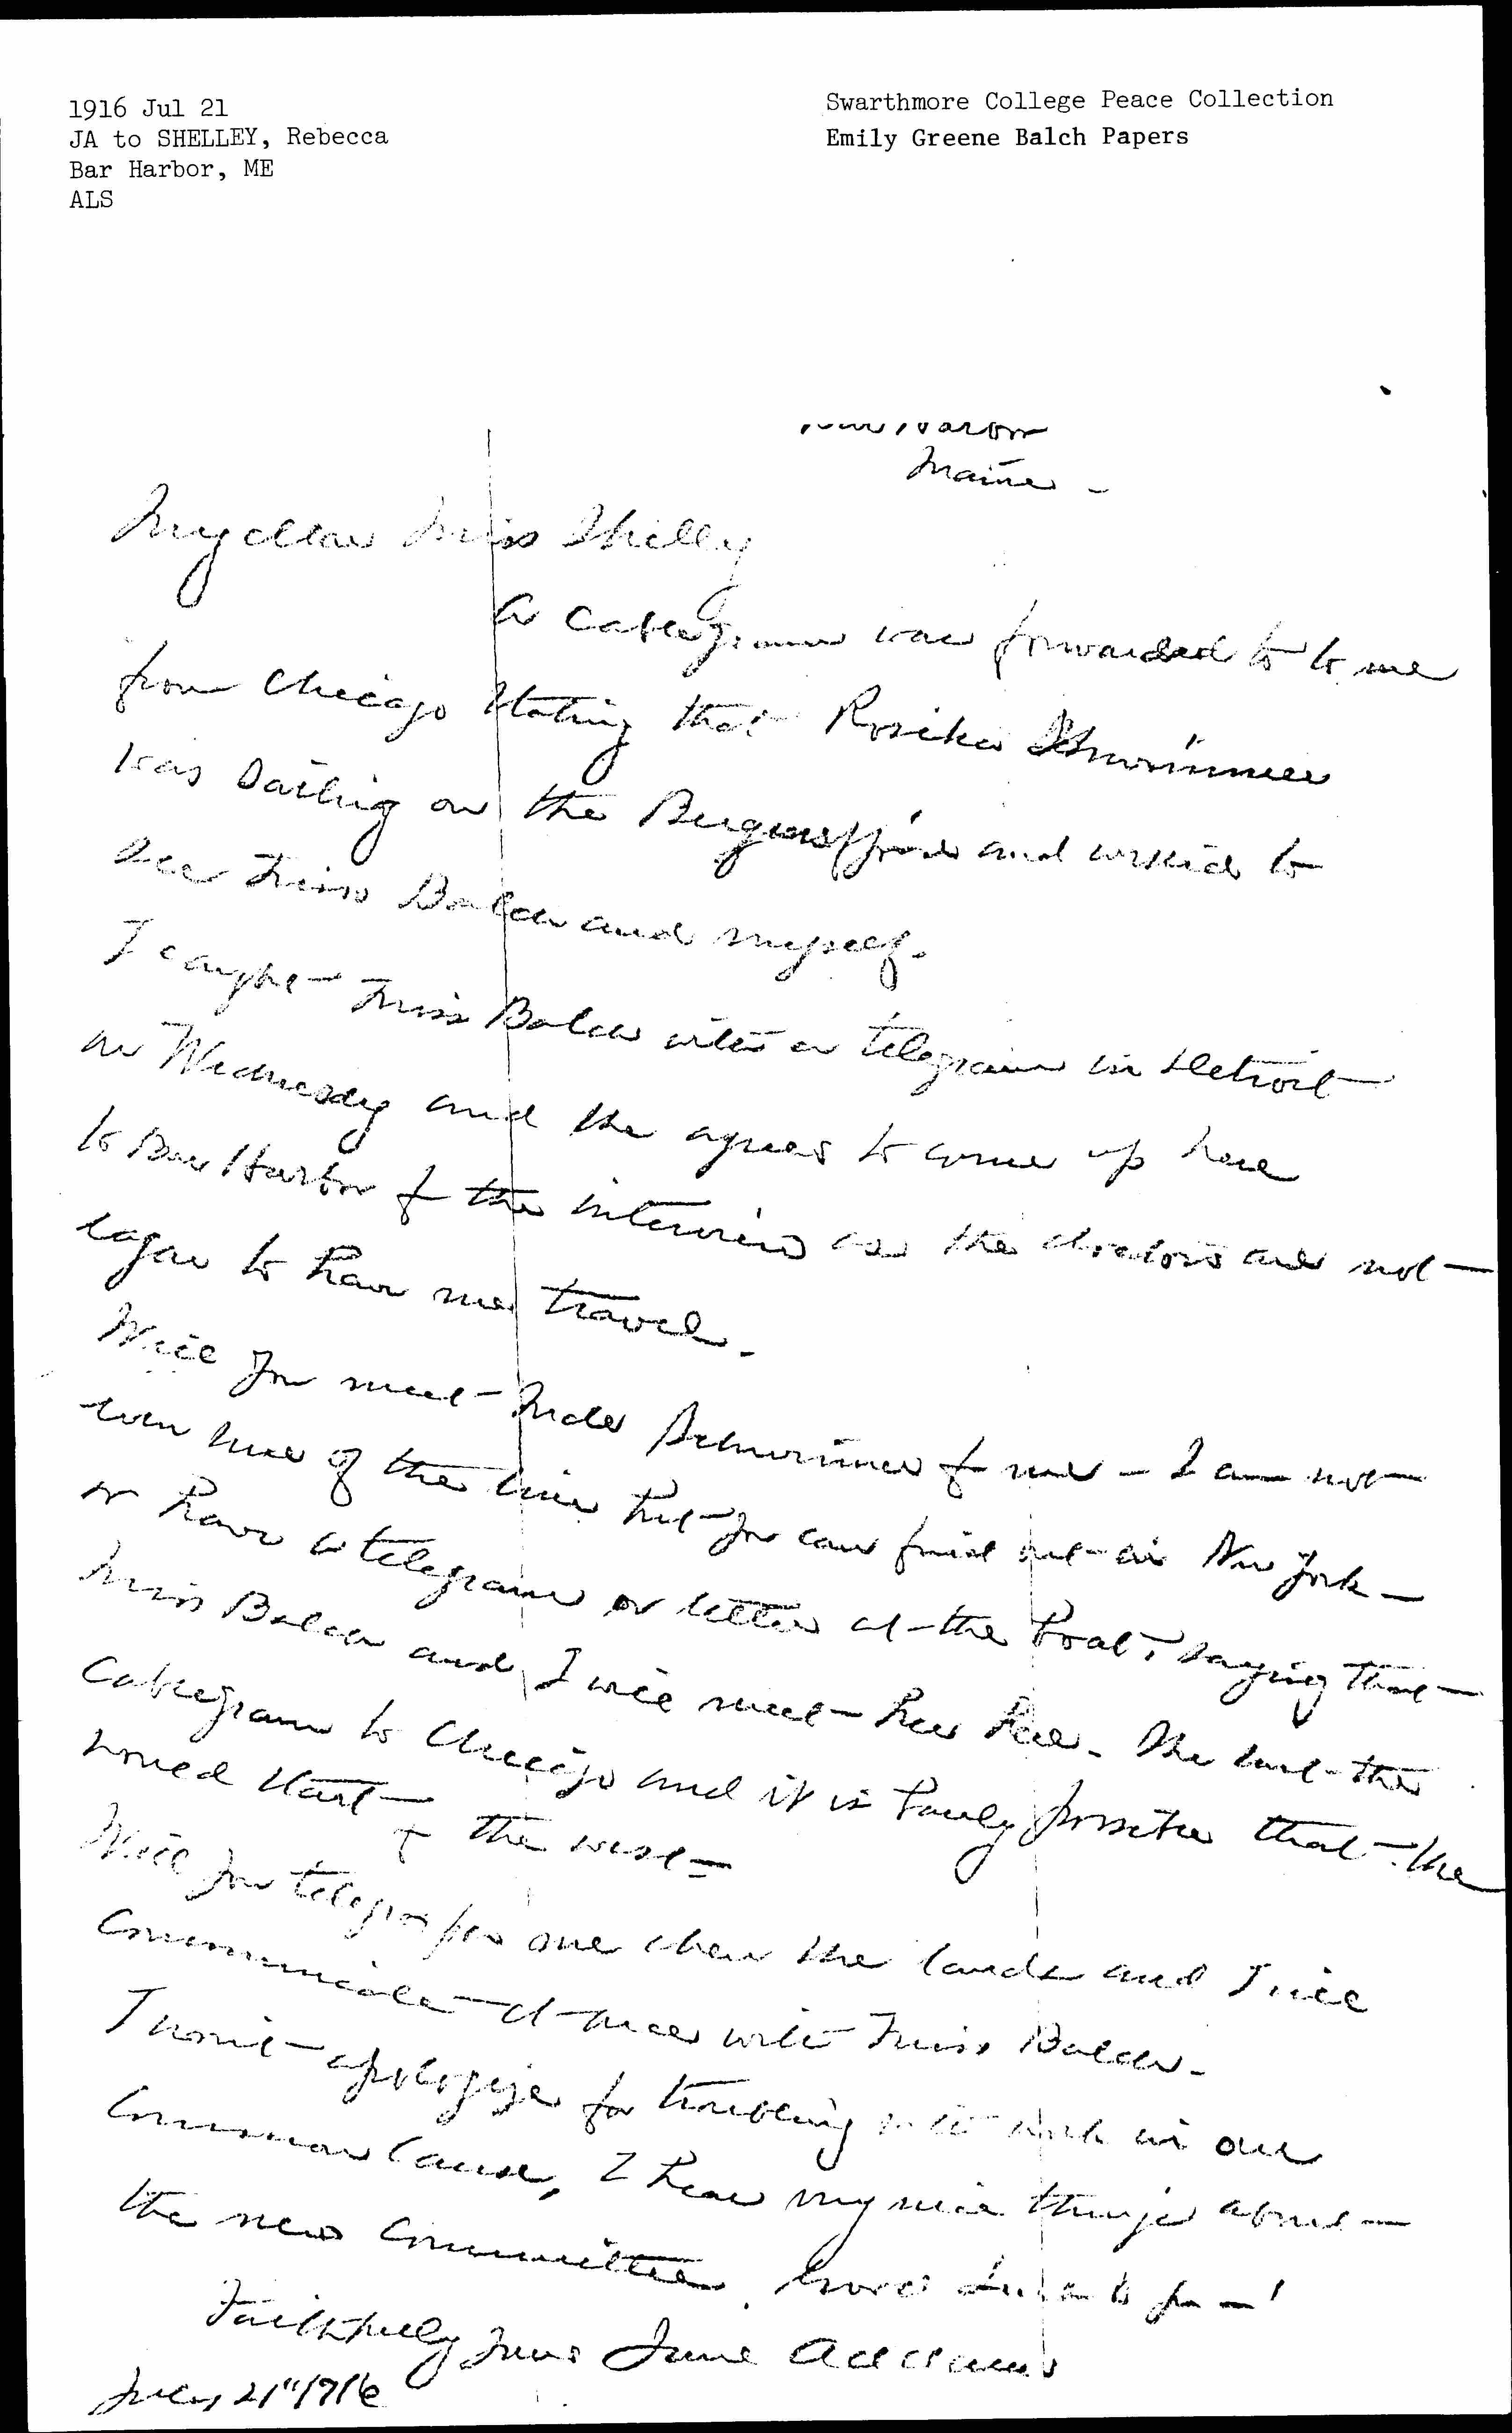 1916 Jul 21
JA to SHELLEY, Rebecca
Bar Harbor, ME
ALS
Swarthmore College Peace Collection
Emily Greene Balch Papers
Harbor
Maine -
My dear Miss Shelley
A cablegram was forwarded to to me
from Chicago stating that Rosika Schwimmer
was sailing on the Bergensfjord and wished to
see Miss Balch and myself.
I caught Miss Balch with a telegram in Detroit
on Wednesday and she agrees to come up here
to Bar Harbor for the interview as the doctors are not
eager to have me travel.
Will you meet Mde Schwimmer for me - I am not
even sure of the line but you can find out in New York -
or have a telegram or letter at the boat, saying that
Miss Balch and I will meet her here. She sent the
cablegram to Chicago and it is barely possible that she
would start for the west -
Will you telegraph me when she lands and I will
communicate at once with Miss Balch.
I won't apologize for troubling with work in our
common cause, I hear nice things about
the new committee. Good luck to you -!
Faithfully yours Jane Addams
July 21" 1916